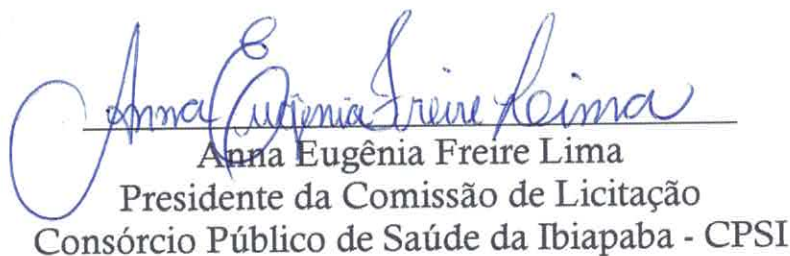 Anna Eugênia Freire Lima
Anna Eugênia Freire Lima
Presidente da Comissão de Licitação
Consórcio Público de Saúde da Ibiapaba - CPSI